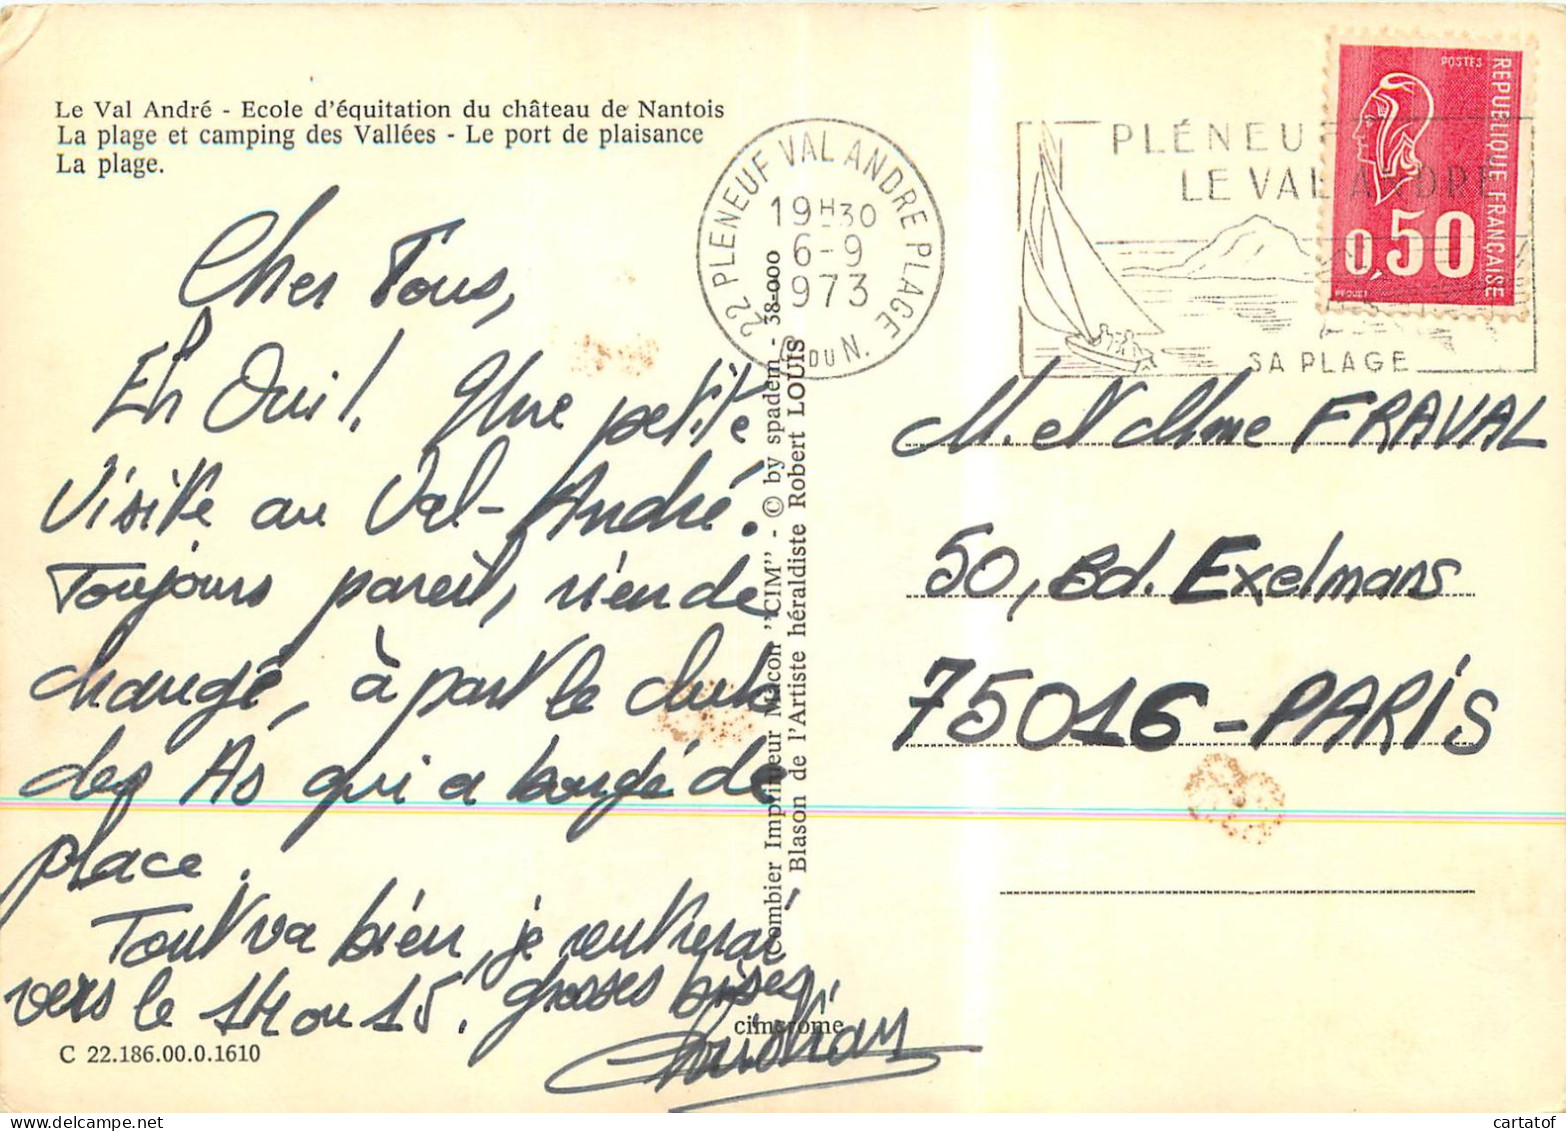 Le Val André - Ecole d'équitation du château de Nantois
La plage et camping des Vallées - Le port de plaisance
La plage.
Cher Tous,
Eh Oui ! Une petite
visite au Val-André.
Toujours pareil, rien de
changé, à part le club
des As qui a bougé de
place.
Tout va bien, je rentrerai
vers le 14 ou 15. grosses bises
Christian
C 22.186.00.0.1610
cimcrome
Combier Imprimeur Macon "CIM" - © by spadem - 38-000
Blason de l'Artiste héraldiste Robert LOUIS
22 PLENEUF VAL ANDRE PLAGE
19H30
6-9
1973
C. DU N.
PLÉNEUF
LE VAL ANDRÉ
SA PLAGE
POSTES
REPUBLIQUE FRANÇAISE
0,50
M. et Mme FRAVAL
50, Bd. Exelmans
75016 - PARIS
cartatof